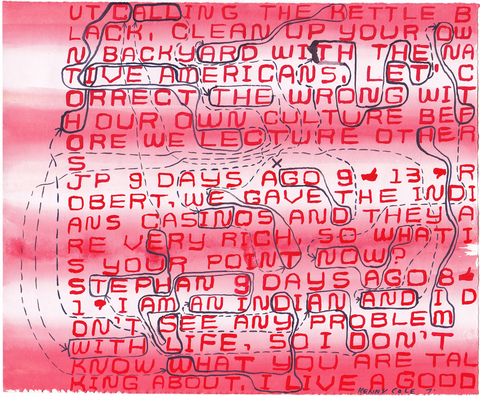 UT CALLING THE KETTLE B
LACK, CLEAN UP YOUR OW
N BACKYARD WITH THE NA
TIVE AMERICANS, LET' C
ORRECT THE WRONG WIT
H OUR OWN CULTURE BEF
ORE WE LECTURE OTHER
S
JP 9 DAYS AGO 9 13 R
OBERT, WE GAVE THE INDI
ANS CASINOS AND THEY A
RE VERY RICH, SO WHAT I
S YOUR POINT NOW?
STEPHAN 9 DAYS AGO 8
1 I AM AN INDIAN AND I D
ON'T SEE ANY PROBLEM
WITH LIFE, SO I DON'T
KNOW WHAT YOU ARE TAL
KING ABOUT, I LIVE A GOOD
KENNY COLE